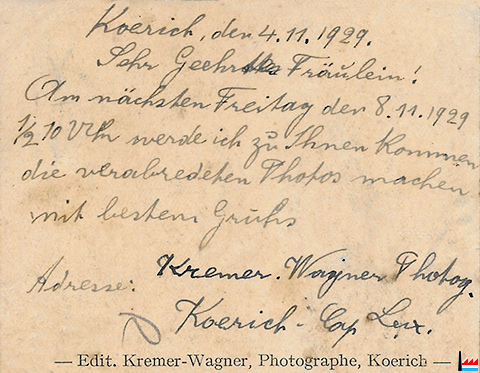 Koerich, den 4.11.1929.
Sehr Geehrtes Fräulein!
Am nächsten Freitag den 8.11.1929
1/2 10 Uhr werde ich zu Ihnen Kommen
die verabredeten Photos machen
mit bestem Gruhs
Kremer-Wagner Photog.
Adresse:
Koerich - Cap Lux.
— Edit. Kremer-Wagner, Photographe, Koerich —